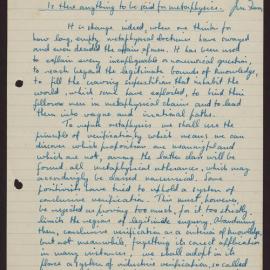 Is there anything to be said for metaphysics.
It is strange indeed, when one thinks for
how long, empty metaphysical doctrines have swayed
and even decided the affairs of men. It has been used
to explain every inexplicable or nonsensical question,
to reach beyond the legitimate bounds of knowledge,
to fill the yawning superstition that inhabit the
world, which some have exploited, to bind their
fellow men in metaphysical chains and to lead
them into vague and irrational paths.
To refute metaphysics we shall use the
principle of verification, which means we can
discover which propositions are meaningful and
which are not, among the latter class will be
found all metaphysical utterances, which may
accordingly be classed nonsensical. Some
positivists have tried to uphold a system of
conclusive verification. This must, however,
be rejected as proving too much, for it too strictly
limits the regions of legitimate enquiry. Abandoning
then, conclusive verification as a criterion of knowledge
but not meanwhile, forgetting its correct application
in many instances, we shall adopt in its
place a system of inductive verification, so called